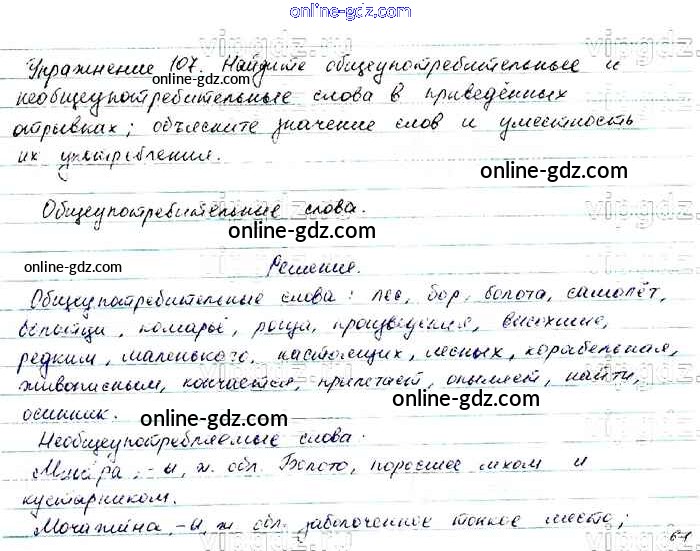 online-gdz.com
Упражнение 107. Найдите общеупотребительные и
необщеупотребительные слова в приведённых
отрывках; объясните значение слов и уместность
их употребления.
online-gdz.com
online-gdz.com
Общеупотребительные слова.
online-gdz.com
online-gdz.com
Решение.
Общеупотребительные слова: лес, бор, болота, самолёт,
комарьё, роща, произведения, высохшие,
редким, маленького, настоящих, лесных, корабельная,
живописным, кончается, прилетает, опыляет, найти,
осинник.
online-gdz.com
online-gdz.com
Необщеупотребляемые слова:
Мшара, -ы, ж. обл. Болото, поросшее мхом и
кустарником.
online-gdz.com
online-gdz.com
Мочажина, -ы ж обл. заболоченное топкое место;
61